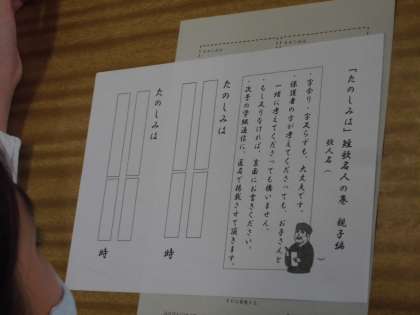 「たのしみは」短歌名人の巻　親子編
歌人名（　　　）
・字余り・字足らずも、大丈夫です。
・保護者の方が考えてくださっても、お子さんと
一緒に考えてくださっても構いません。
・もし足りなければ、裏面にお書きください。
・次子の学級通信に、匿名で掲載させて頂きます。
たのしみは
時
たのしみは
時